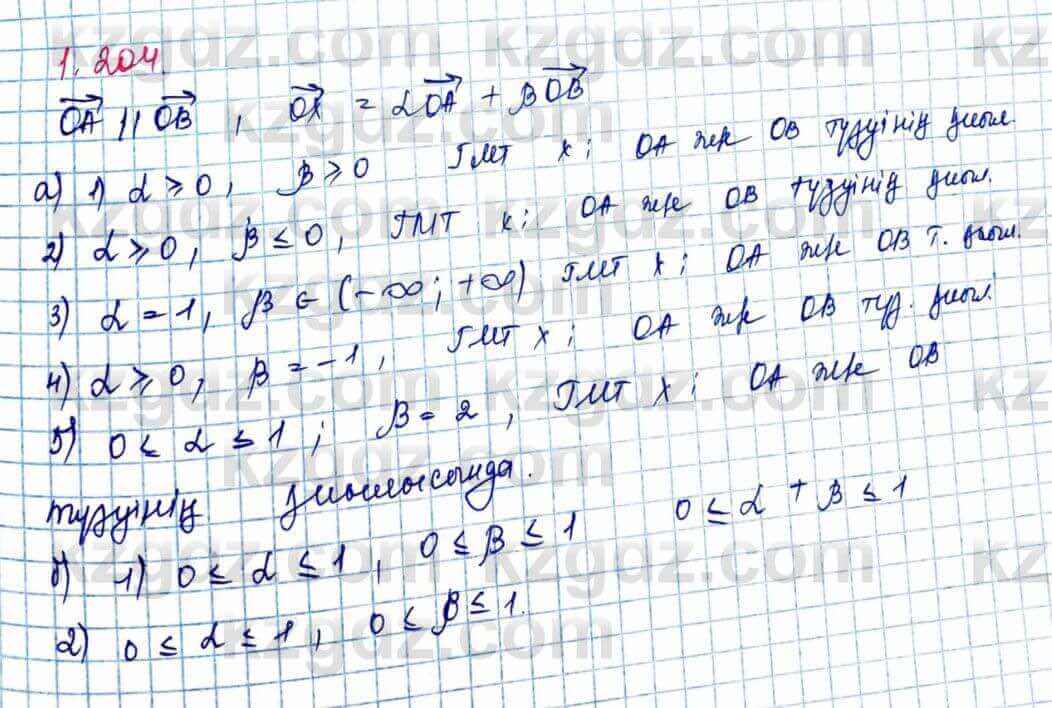 1.204
OA || OB , OX = αOA + βOB
а) 1) α ≥ 0, β ≥ 0 ГМТ x; ОА және ОВ түзуінің қиыл.
2) α ≥ 0, β ≤ 0, ГМТ x; ОА және ОВ түзуінің қиыл.
3) α = 1, β ∈ (-∞; +∞) ГМТ x; ОА және ОВ т. қиыл.
4) α ≥ 0, β = -1, ГМТ x; ОА және ОВ түз. қиыл.
5) 0 ≤ α ≤ 1; β = 2, ГМТ x; ОА және ОВ
түзуінің қиылысында.
б) 1) 0 ≤ α ≤ 1, 0 ≤ β ≤ 1 0 ≤ α + β ≤ 1
2) 0 ≤ α ≤ 1, 0 ≤ β ≤ 1.
kzgdz.com